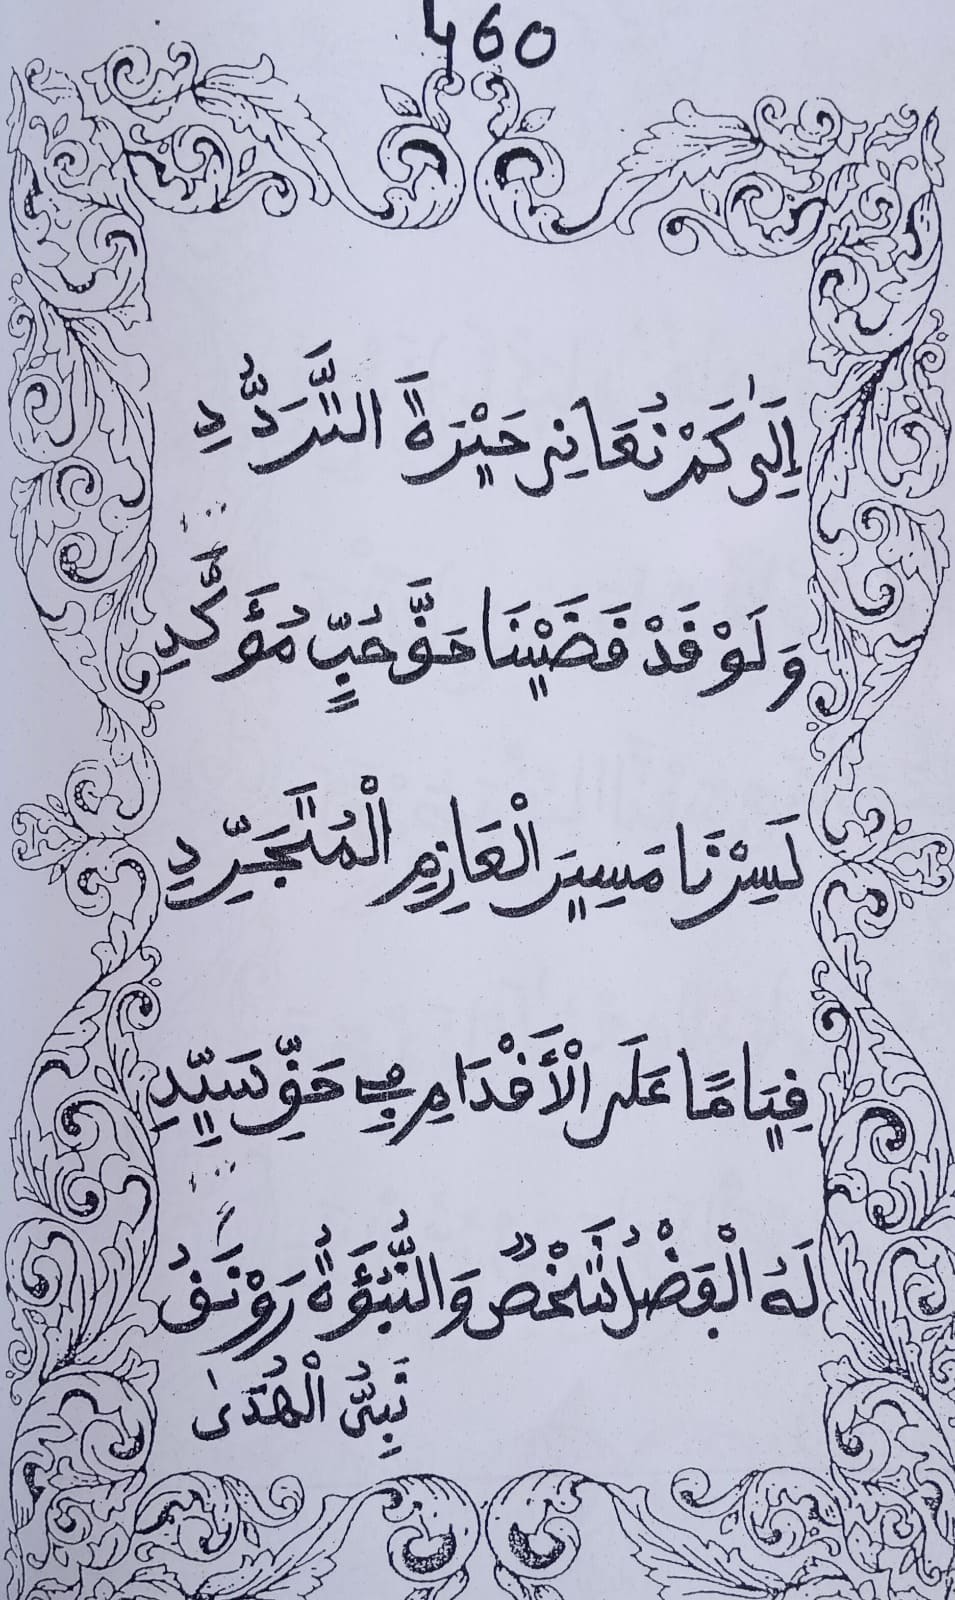 460
إِلَىٰ كَمْ نُعَانِي حَيْرَةَ التَّرَدُّدِ
وَلَوْ قَدْ قَضَيْنَا حَقَّ حُبٍّ مُؤَكَّدِ
لَسِرْنَا مَسِيرَ الْعَازِمِ الْمُتَجَرِّدِ
قِيَامًا عَلَى الْأَقْدَامِ فِي حَقِّ سَيِّدِ
لَهُ الْفَضْلُ شَخْصٌ وَالنُّبُوَّةُ رَوْنَقُ
نَبِيُّ الْهُدَىٰ